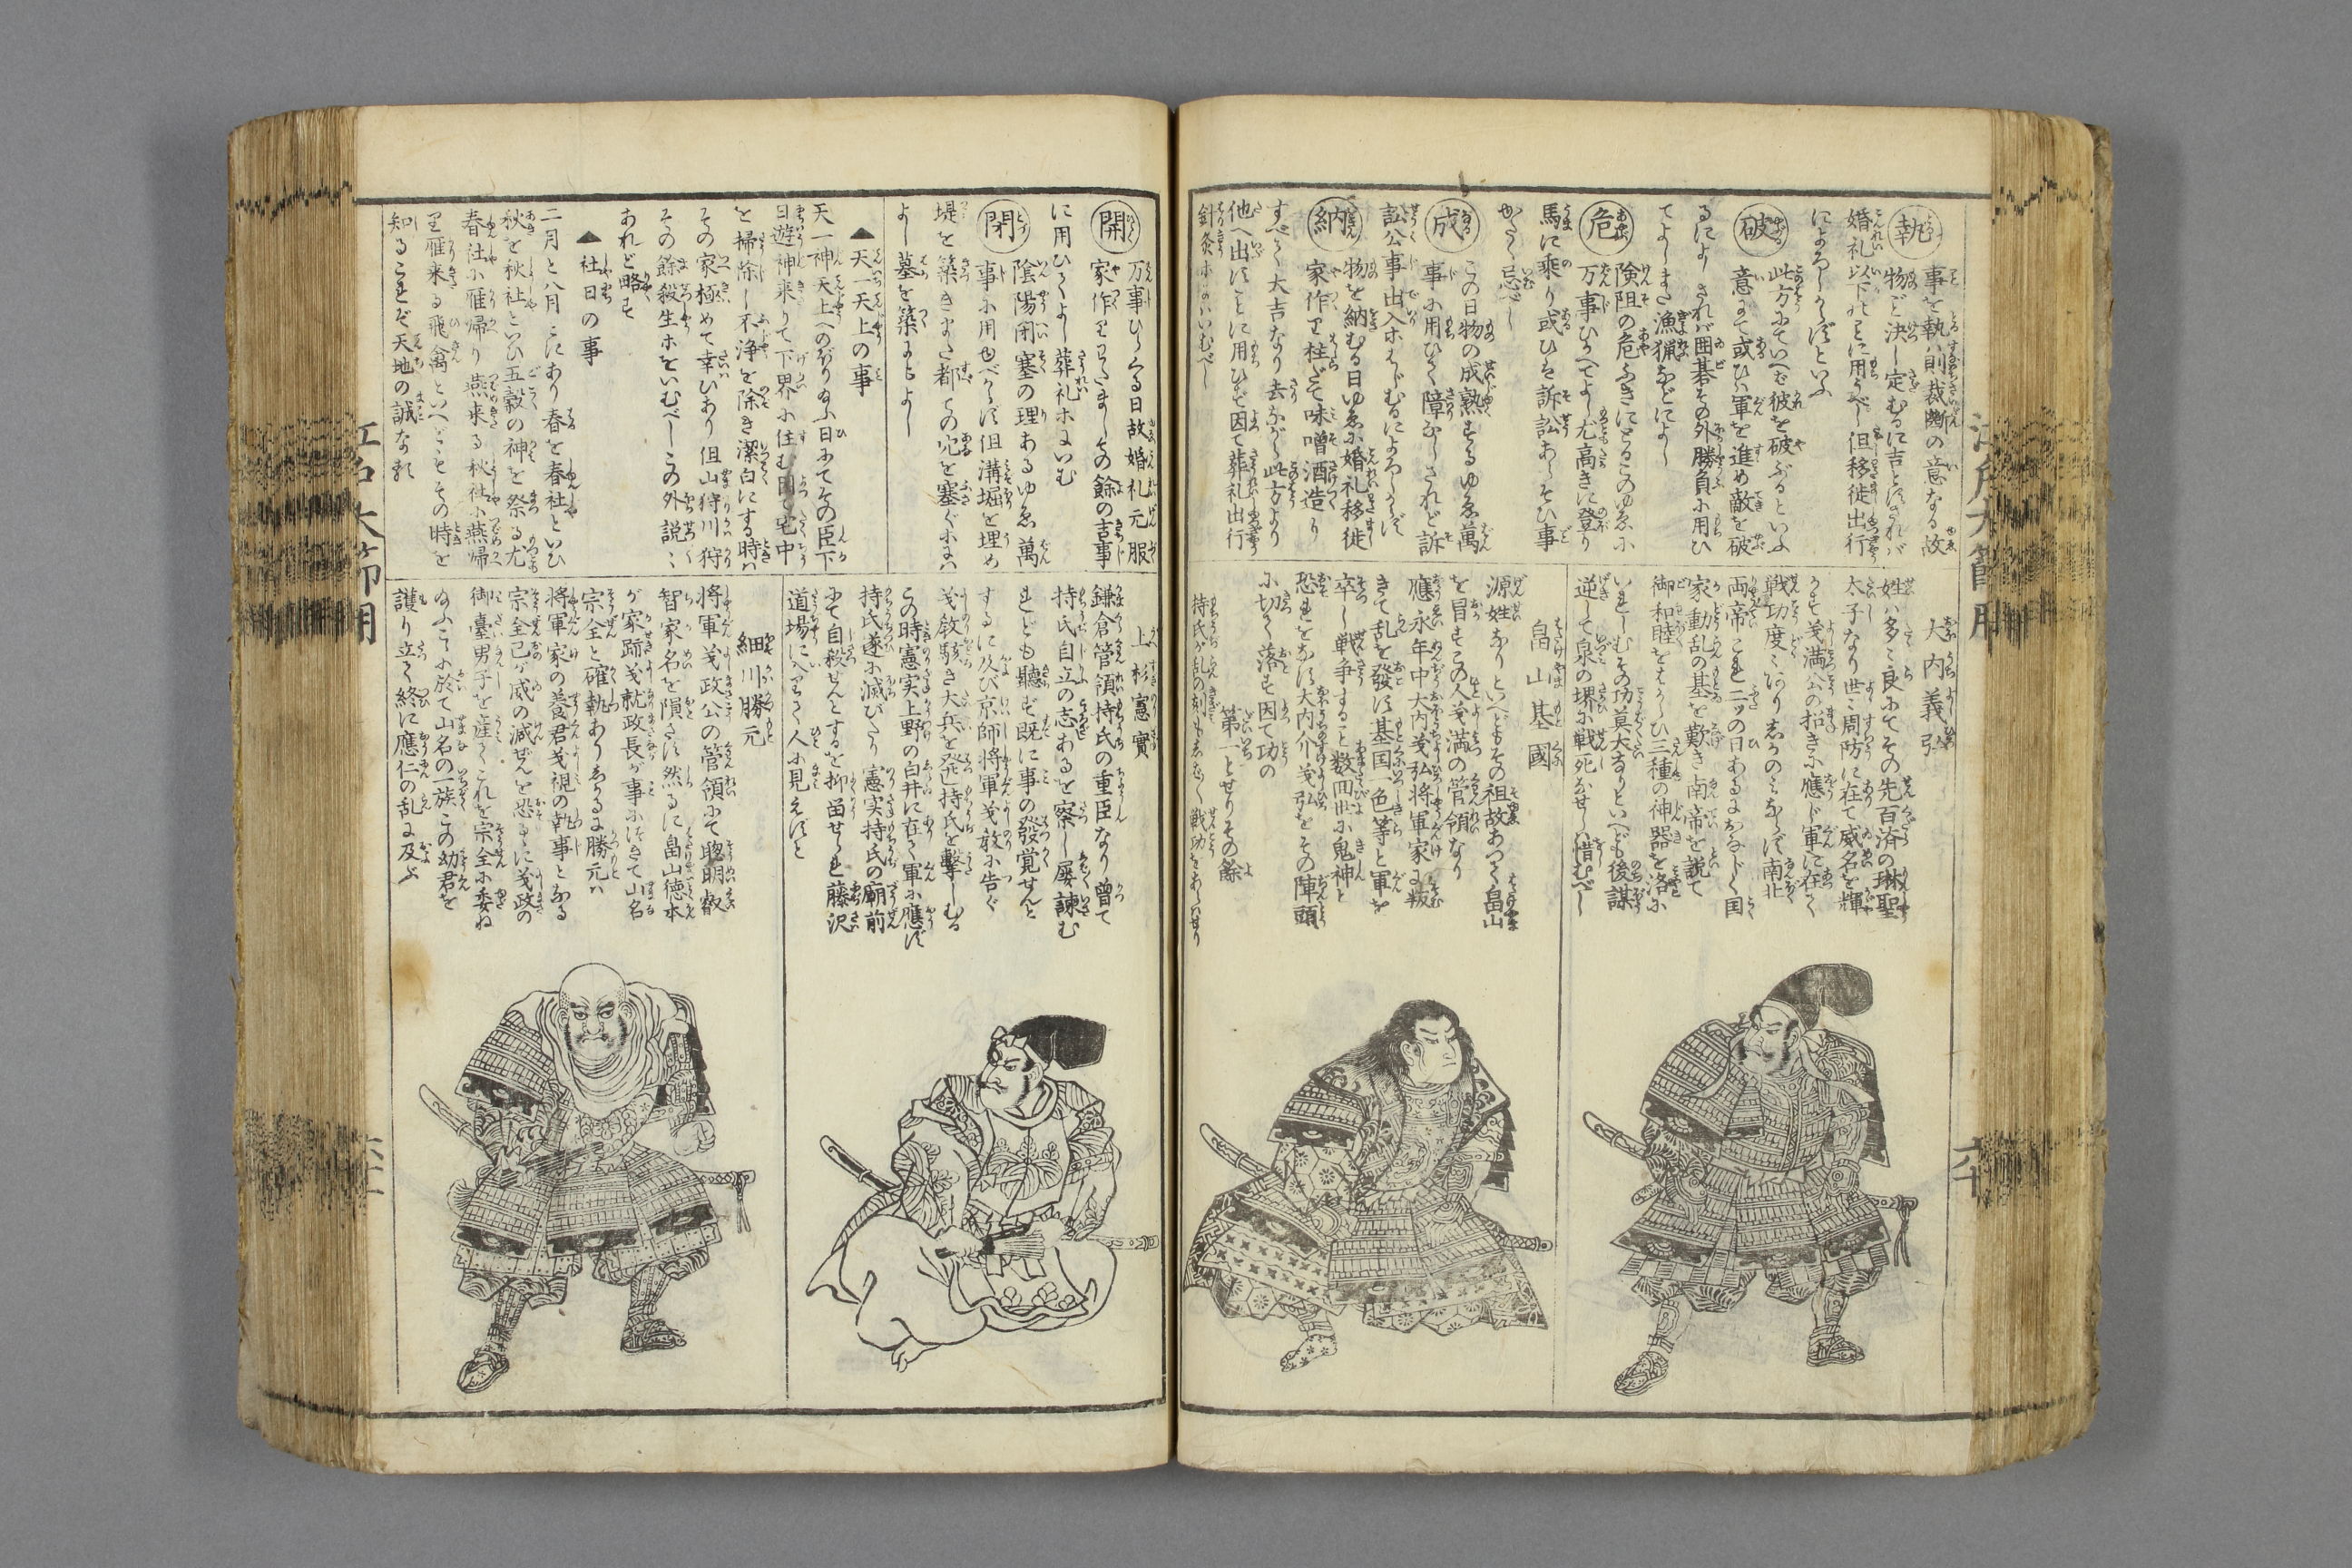 執 事を執ハ則裁断の意なる故
物ごと決し定むるに吉とす されバ
婚礼以下のことに用うべし 但移徙出行
によろしからずといふ
破 此方にていへバ彼を破ぶるといふ
意にて或ひハ軍を進め敵を破
るによし されバ囲碁その外勝負に用ひ
てよし また漁猟などによし
危 険阻の危ふきにとる このゆゑに
万事ひかへてよし 尤高きに登り
馬に乗り或ひは訴訟あらそひ事
かたく忌べし
成 この日物の成熟するゆゑ萬
事に用ひて障なし されど訴
訟公事出入ホはじむるによろしからず
納 物を納むる日ゆゑに婚礼移徙
家作り柱だて味噌酒造り
すべて大吉なり 去ながら此方より
他へ出すことに用ひず 因て葬礼出行
針灸ホにハいむべし
大内義弘
姓ハ多々良にてその先百済の琳聖
太子なり 世々周防に在て威名を輝
かす 義満公の招きに應じ軍に在て
戦功度々なり しかのミならず南北
両帝これ二ツの日あるにおなじく国
家動乱の基を歎き南帝を説て
御和睦をはからひ三種の神器を洛に
いれしむ その功莫大なりといへども後謀
逆して泉の堺に戦死なせしハ惜むべし
畠山基國
源姓なりといへどもその祖故あつて畠山
を冒す この人義満の管領なり
應永年中大内義弘将軍家に叛
きて乱を發す 基国一色等と軍を
卒し戦争すること数回 世に鬼神と
恐れをなす大内介義弘をその陣頭
に切て落す 因て功の
第一とせり その餘
持氏が乱の刻もまた戦功をあらハせり
開 万事ひらくる日故婚礼元服
家作りわたましその餘の吉事
に用ひてよし 葬礼ホにいむ
閉 陰陽閉塞の理あるゆゑ萬
事に用ゆべからず 但溝堀を埋め
堤を築き また都ての穴を塞ぐホにハ
よし 墓を築によし
▲天一天上の事
天一神天上へのぼり給ふ日にてその臣下
日遊神来りて下界に住む 因て宅中
を掃除し不浄を除き潔白にする時ハ
その家極めて幸ひあり 但山狩川狩
その餘殺生ホをいむべし この外説々
あれど略す
▲社日の事
二月と八月にあり 春を春社といひ
秋を秋社といひ五穀の神を祭る 尤
春社に雁帰り燕来る 秋社に燕帰
り雁来る 飛禽といへどもその時を
知ることぞ天地の誠なれ
上杉憲實
鎌倉管領持氏の重臣なり 曽て
持氏自立の志あるを察し屡諫む
れども聴ず 既に事の發覚せんと
するに及び京師将軍義教に告ぐ
義教駭き大兵を発し持氏を撃しむる
この時憲実上野の白井に在て軍に應ず
持氏遂に滅びたり 憲実持氏の廟前
にて自殺せんとするを抑留せられ藤沢
道場にいりて人に見えずと
細川勝元
将軍義政公の管領にて聡明叡
智家名を隕さず 然るに畠山徳本
が家跡義就政長が事につきて山名
宗全と確執あり しかるに勝元ハ
将軍家の養君義視の執事となる
宗全己が威の減ぜんを恐るゝに義政の
御臺男子を産てこれを宗全に委ね
給ふ こゝに於て山名の一族この幼君を
護り立て終に應仁の乱に及ぶ
江戸大節用
六十